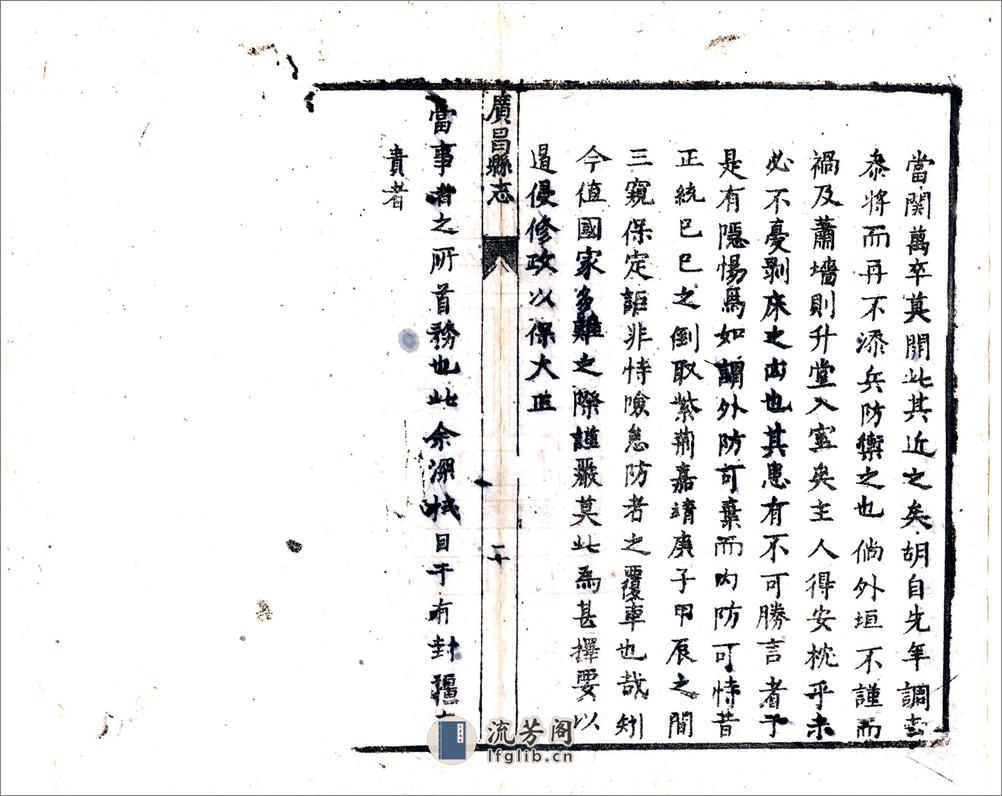 當関萬卒莫開此其近之矣胡自先年調去
叅將而再不添兵防禦之也倘外垣不謹而
禍及蕭墻則升堂入室矣主人得安枕乎未
必不憂剝床之凶也其患有不可勝言者予
是有隱惕焉如謂外防可棄而內防可恃昔
正統己巳之倒取紫荊嘉靖庚子甲辰之間
三窺保定詎非恃險怠防者之覆車也哉矧
今值國家多難之際謹嚴莫此為甚擇要以
遏侵修政以保大
廣昌縣志
二十
當事者之所首務也此余深拭目于有封疆
責者
流芳阁
lfglib.cn